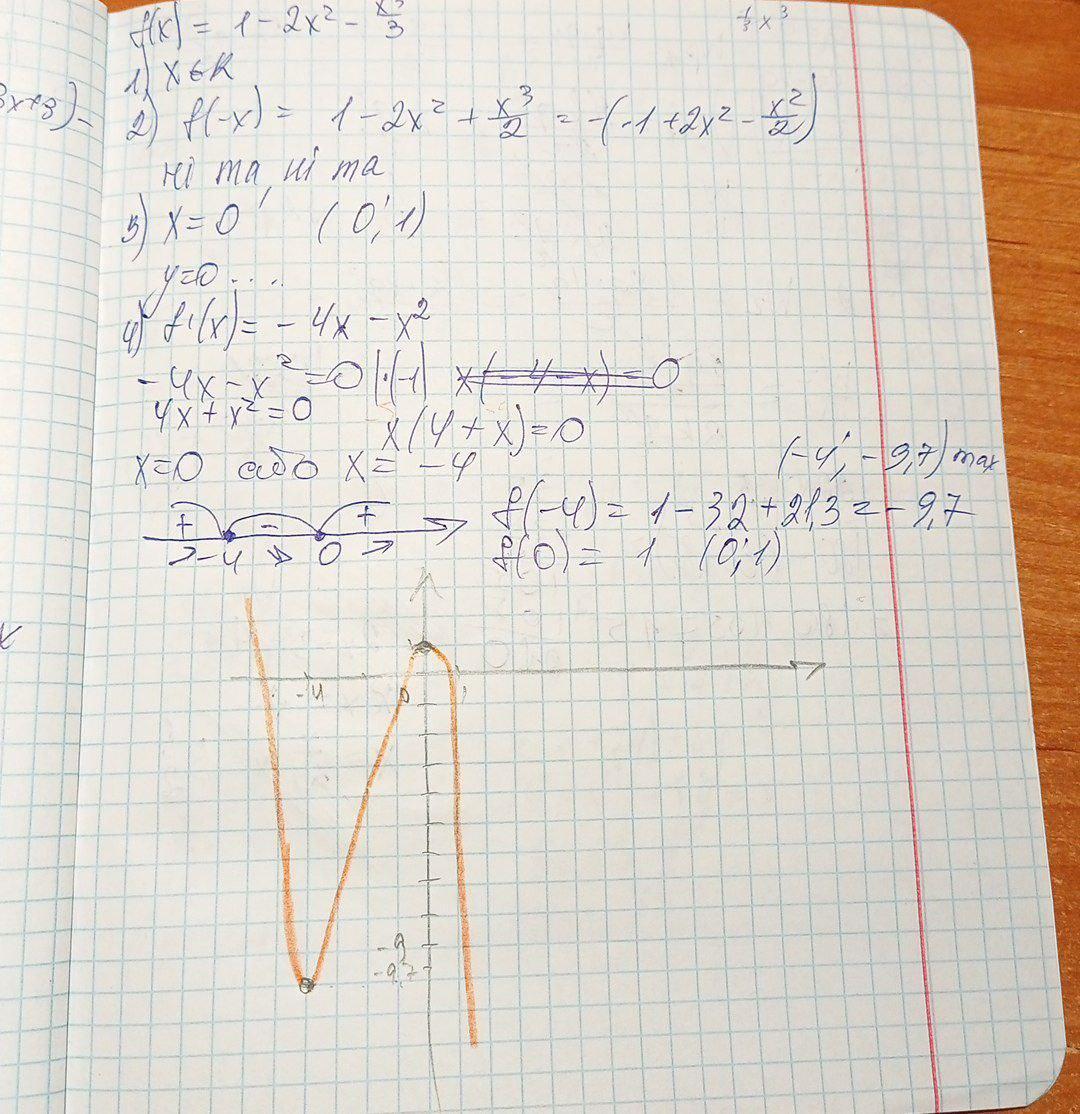 f(x) = 1 - 2x² - x³/3
⅓x³
3x+3)-
1) x∈R
2) f(-x) = 1 - 2x² + x³/2 = -(-1 + 2x² - x²/2)
ні та, ні та
3) x = 0 (0; 1)
y=0 ....
4) f'(x) = -4x - x²
-4x - x² = 0 |·(-1) x(-4-x) = 0
4x + x² = 0
x(4 + x) = 0
x = 0 або x = -4
(-4; -9,7) max
+ - +
-4 0
f(-4) = 1 - 32 + 21,3 = -9,7
f(0) = 1 (0; 1)
-4 0 1
-9
-9,7